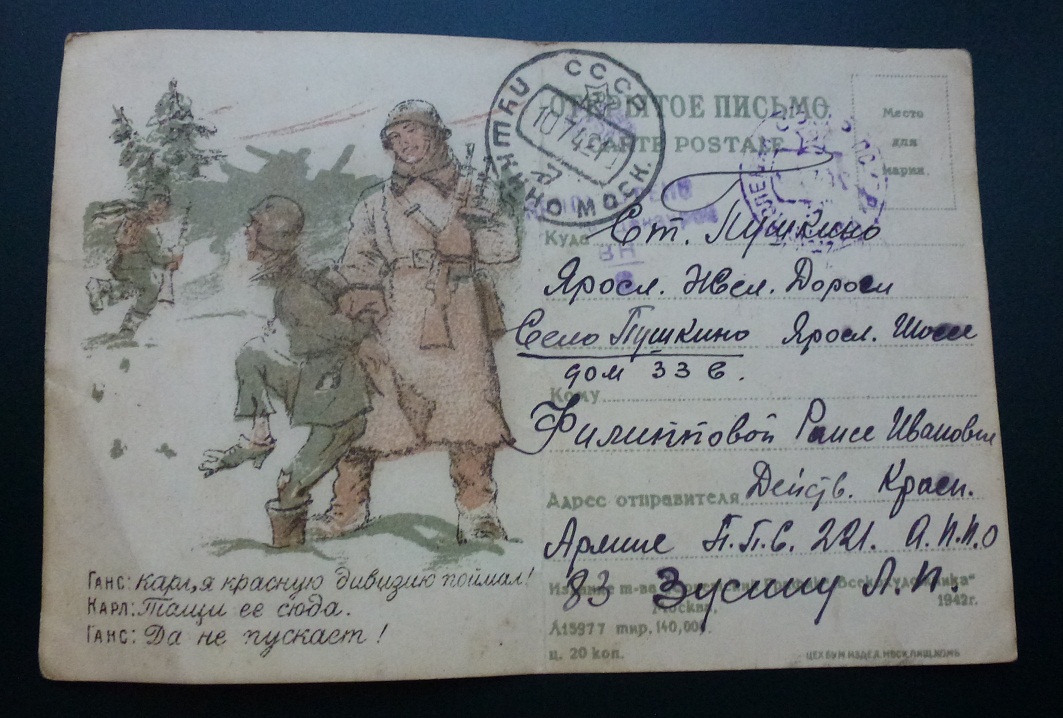 ПУШКИНО МОСК. СССР
10742
ОТКРЫТОЕ ПИСЬМО
CARTE POSTALE
Место
для
марки.
Куда Ст. Пушкино
Яросл. Жел. Дороги
Село Пушкино Яросл. Шоссе
дом 33 в.
Кому
Филипповой Раисе Ивановне
Адрес отправителя Действ. Красн.
Армие П.П.С. 221. А.П.П.О
83 Зусину Л.П.
Издание т-ва „Всекохудожника"
Москва, 1942г.
Л15977 тир. 140,000.
ц. 20 коп.
ЦЕХ БУМ ИЗДЕЛ.
ГАНС: Карл, я красную дивизию поймал!
КАРЛ: Тащи ее сюда.
ГАНС: Да не пускает!